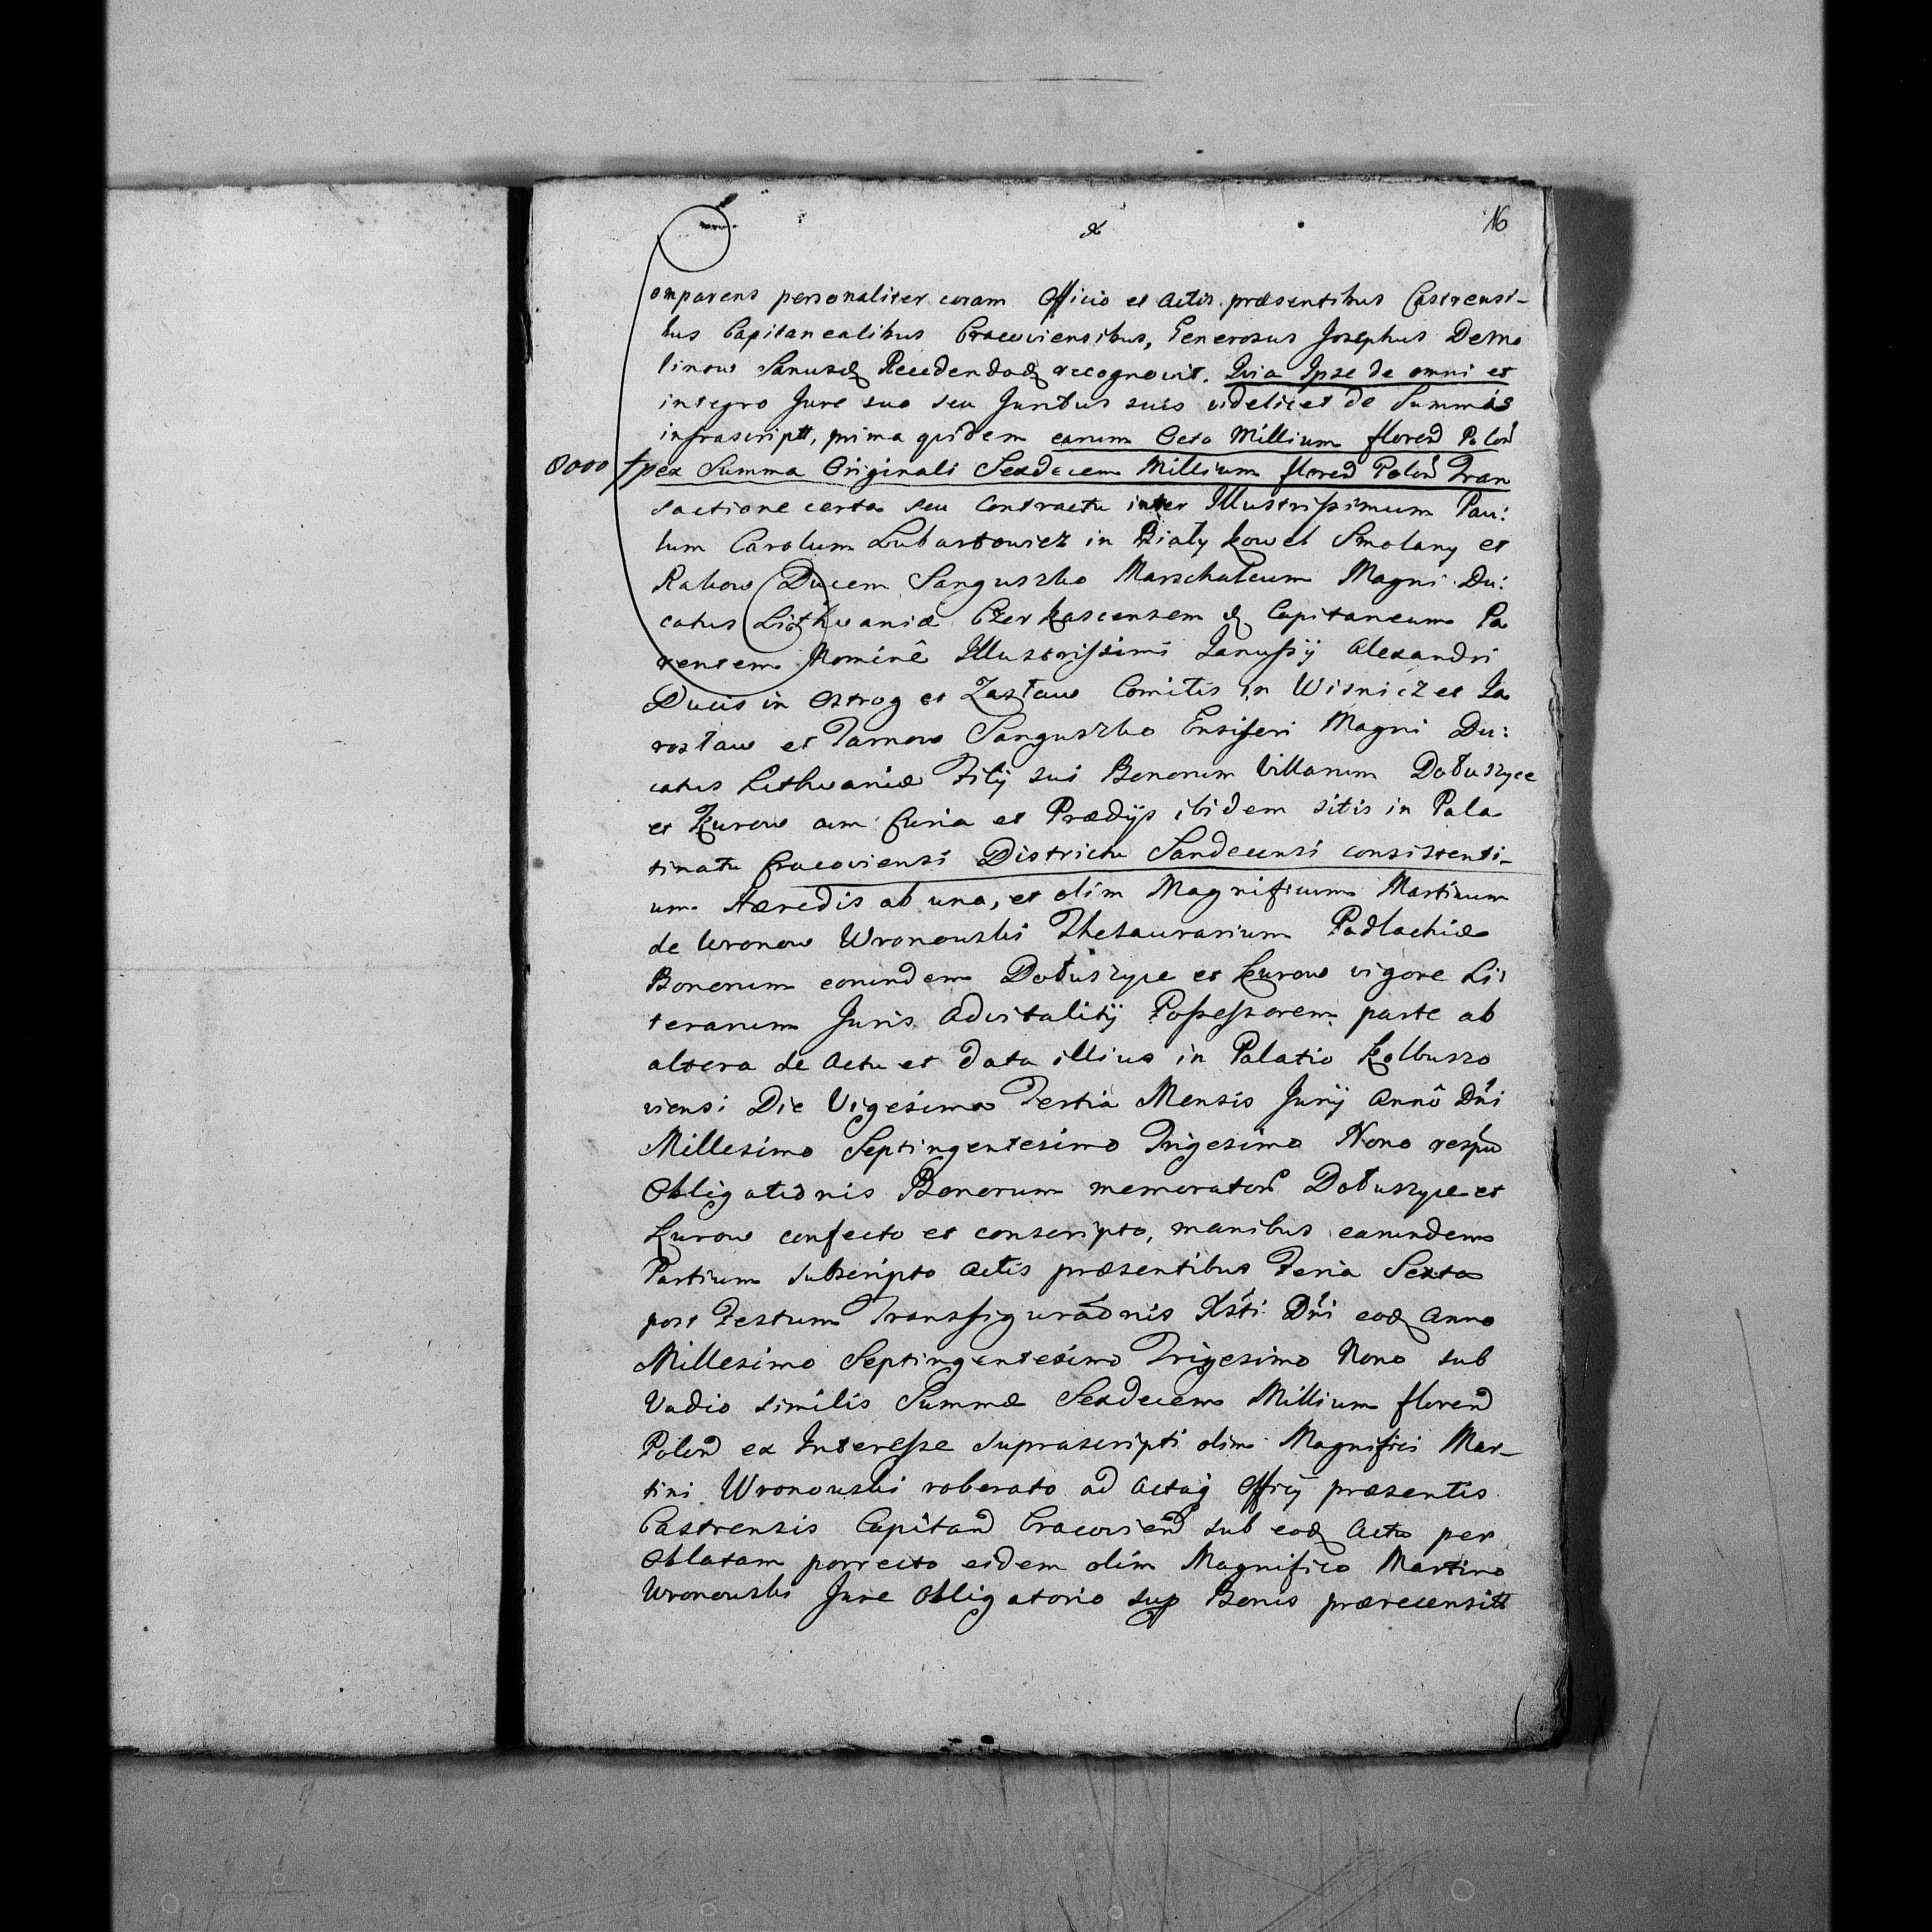 16
Comparens personaliter coram Officio et Actis præsentibus Castrensi-
bus Capitanealibus Cracoviensibus, Generosus Josephus Dembo
linow Sanusq Recedendoq recognovit. Quia Ipse de omni et
integro Jure suo seu Juribus suis videlicet de Summis
infrascriptt, prima quidem earum Octo Millium floren Polon
8000 ex Summa Originali Sexdecem Millium floren Polon Tran
sactione certa seu Contractu inter Illustrissimum Pau:
lum Carolum Lubartowicz in Biały Kowel Smolany et
Rakow Ducem Sanguszko Marschalcum Magni Du:
catus Lithvaniæ Czerkascensem & Capitaneum Pa
rentem Nominê Illustrissimi Janussij Alexandri
Ducis in Ostrog et Zasław Comitis in Wisnicz et Ja
rosław et Tarnow Sanguszko Ensiferi Magni Du:
catus Lithvaniæ Filij sui Bonorum Villarum Dołuszyce
et Kurow cum Curia et Prædijs ibidem sitis in Pala
tinatu Cracoviensi Districtu Sandecensi consistenti-
um Hæredis ab una, et olim Magnificum Martinum
de Wronow Wronowski Thesaurarium Podlachiæ
Bonorum eorundem Dołuszyce et Kurow vigore Li:
terarum Juris Advitalitij Possessorem parte ab
altera de Actu et Data illius in Palatio Kolbuszo
viensi Die Vigesima Tertia Mensis Junij Annô Dni
Millesimo Septingentesimo Trigesimo Nono respu
Obligationis Bonorum memorator Dołuszyce et
Kurow confecto et conscripto, manibus earundem
Partium subscripto Actis præsentibus Feria Sexta
post Festum Transfiguraonis Xsti Dni eoq Anno
Millesimo Septingentesimo Trigesimo Nono sub
Vadio similis Summæ Sexdecem Millium floren
Polon ex Interesse suprascripti olim Magnifici Mar-
tini Wronowski roborato ad Actaq Officij præsentis
Castrensis Capitan Cracovien sub eoq Actu per
Oblatam porrecto eidem olim Magnifico Martino
Wronowski Jure Obligatorio sup Bonis præcensitt